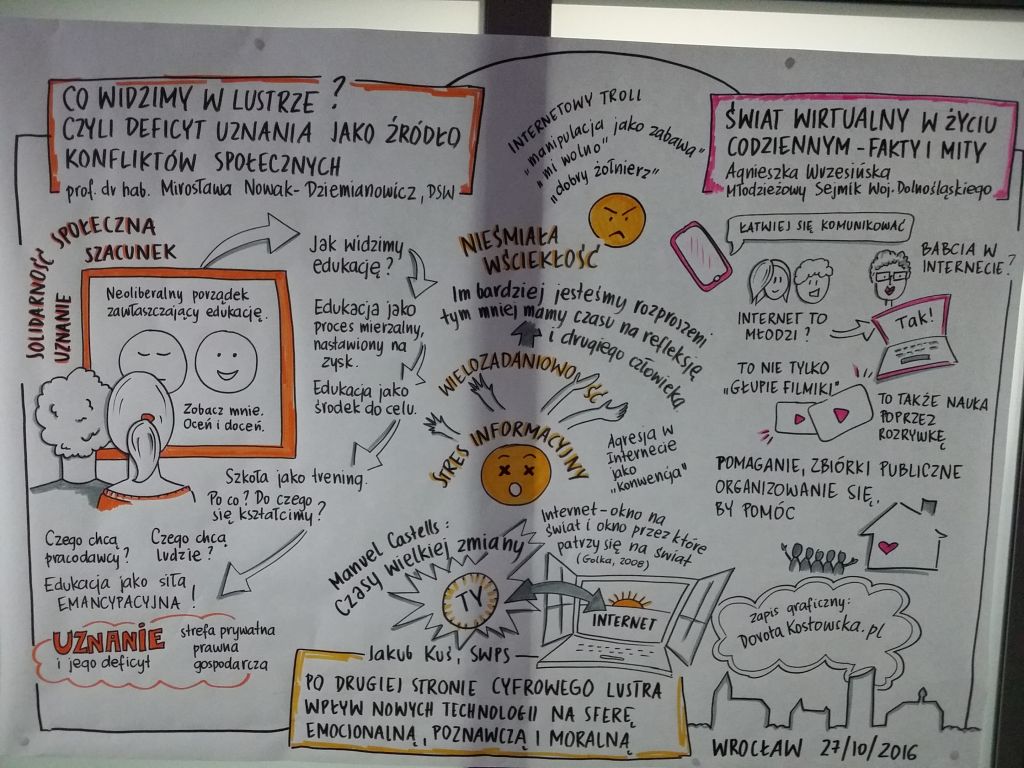 CO WIDZIMY W LUSTRZE?
CZYLI DEFICYT UZNANIA JAKO ŹRÓDŁO
KONFLIKTÓW SPOŁECZNYCH
prof. dr hab. Mirosława Nowak-Dziemianowicz, DSW
SOLIDARNOŚĆ SPOŁECZNA
SZACUNEK
UZNANIE
Neoliberalny porządek
zawłaszczający edukację.
Zobacz mnie.
Oceń i doceń.
Jak widzimy
edukację?
Edukacja jako
proces mierzalny,
nastawiony na
zysk.
Edukacja jako
środek do celu.
Szkoła jako trening.
Po co? Do czego
się kształcimy?
Czego chcą
pracodawcy?
Czego chcą
ludzie?
Edukacja jako siła
EMANCYPACYJNA!
UZNANIE
i jego deficyt
strefa prywatna
prawna
gospodarcza
INTERNETOWY TROLL
"manipulacja jako zabawa"
"mi wolno"
"dobry żołnierz"
NIEŚMIAŁA
WŚCIEKŁOŚĆ
Im bardziej jesteśmy rozproszeni
tym mniej mamy czasu na refleksję
i drugiego człowieka
WIELOZADANIOWOŚĆ
STRES INFORMACYJNY
Agresja w
Internecie
jako
"konwencja"
Manuel Castells:
Czasy wielkiej zmiany
TY
Internet-okno na
świat i okno przez które
patrzy się na świat
(Golka, 2008)
INTERNET
Jakub Kuś, SWPS
PO DRUGIEJ STRONIE CYFROWEGO LUSTRA
WPŁYW NOWYCH TECHNOLOGII NA SFERĘ
EMOCJONALNĄ, POZNAWCZĄ I MORALNĄ
ŚWIAT WIRTUALNY W ŻYCIU
CODZIENNYM-FAKTY I MITY
Agnieszka Wrzesińska
Młodzieżowy Sejmik Woj. Dolnośląskiego
ŁATWIEJ SIĘ KOMUNIKOWAĆ
BABCIA W
INTERNECIE?
INTERNET TO
MŁODZI?
Tak!
TO NIE TYLKO
"GŁUPIE FILMIKI"
TO TAKŻE NAUKA
POPRZEZ
ROZRYWKĘ
POMAGANIE, ZBIÓRKI PUBLICZNE
ORGANIZOWANIE SIĘ,
BY POMÓC
zapis graficzny:
Dorota Kostowska.pl
WROCŁAW 27/10/2016